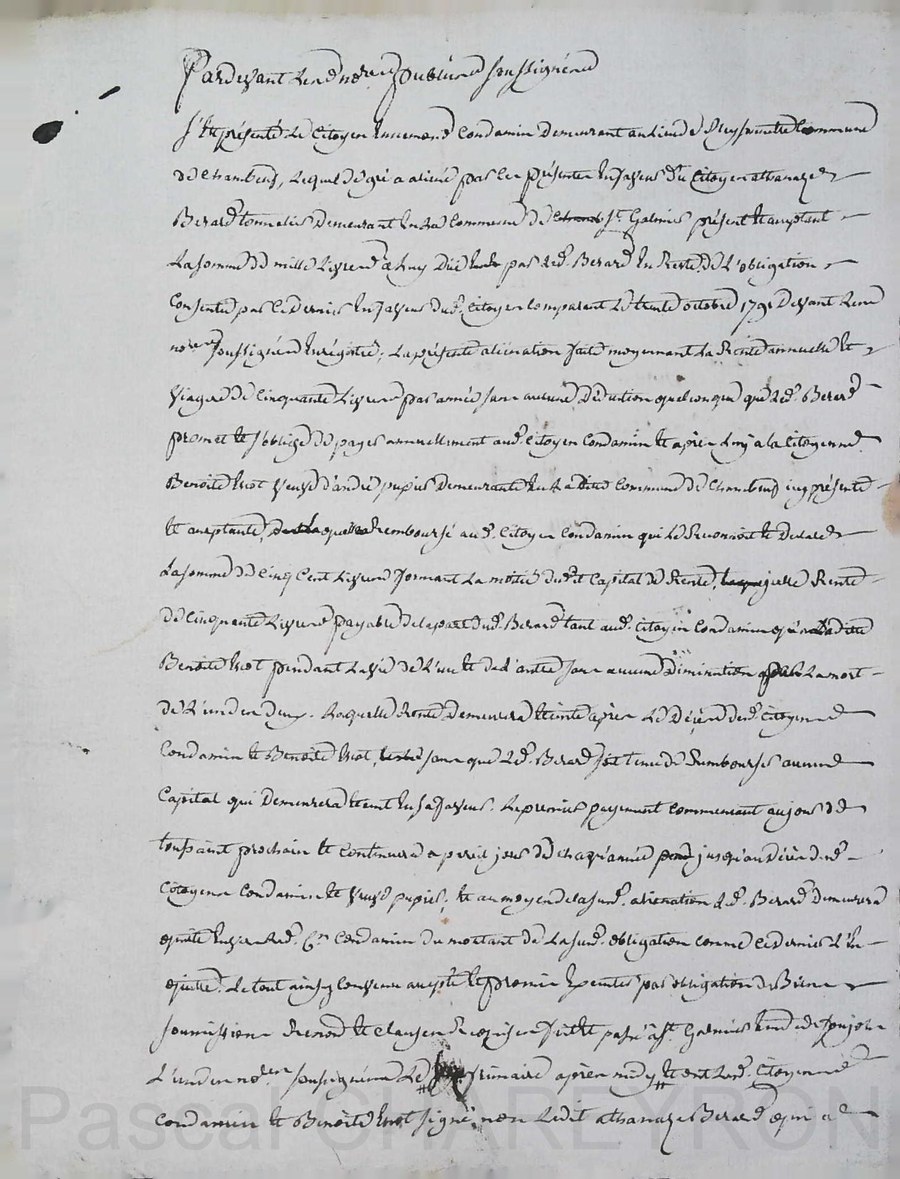 Pardevant les no.res publics soussignés
s'est présenté le Citoyen Condamin demeurant au lieu de commune
de Chambeuf, lequel de gré a aliené par ces présentes en faveur du Citoyen athanaze
Berard tonnelier demeurant en la Commune de St. Galmier présent et acceptant
la somme de mille livres à luy düe par led. Berard en reste de l'obligation
consentie par ce dernier en faveur dud. Citoyen comparant le trente octobre 1791 devant l'un des
no.res soussignés enrégistrée; la présente aliénation faite moyennant la Rente annuelle et
viagere de cinquante livres par année sans aucune déduction quelconque que led. Berard
promet et s'oblige de payer annuellement aud. Citoyen Condamin et après luy à la Citoyenne
Benoite veuve d'andré pupier demeurante en lad. Commune de Chambeuf icy présente
et acceptante, remboursé aud. Citoyen Condamin qui le reconnoit et declare
la somme de cinq cent livres formant la moitié dudit Capital de Rente, Rente
de cinquante livres payable de la part dud. Berard tant aud. Citoyen Condamin qu'a ladite
Benoite pendant la vie de l'un et de l'autre sans aucune diminution par la mort
de l'un des deux. Laquelle Rente demeurera éteinte après le décès desd. Citoyens
Condamin et Benoite sans que led. Berard soit tenu de rembourser aucun
Capital qui demeurera éteint en sa faveur. Le premier payement commencant au jour de
toussaint prochain et continuera a pareil jour de chaq'année jusqu'au décès desd.
Citoyens Condamin et veuve pupier, et au moyen de la susd. aliénation led. Berard demeurera
quitte envers led. C.en Condamin du montant de la susd. obligation comme ce dernier l'en
quitte. Le tout ainsy convenu accepté et promis executer par obligation de Biens
soumissions renond. et clauses requises fait et passé à St. Galmier étude de
l'un des no.res soussignés le primaire après midy et ont lesd. Citoyens
Condamin et Benoite signé, non ledit athanaze Berard qui a